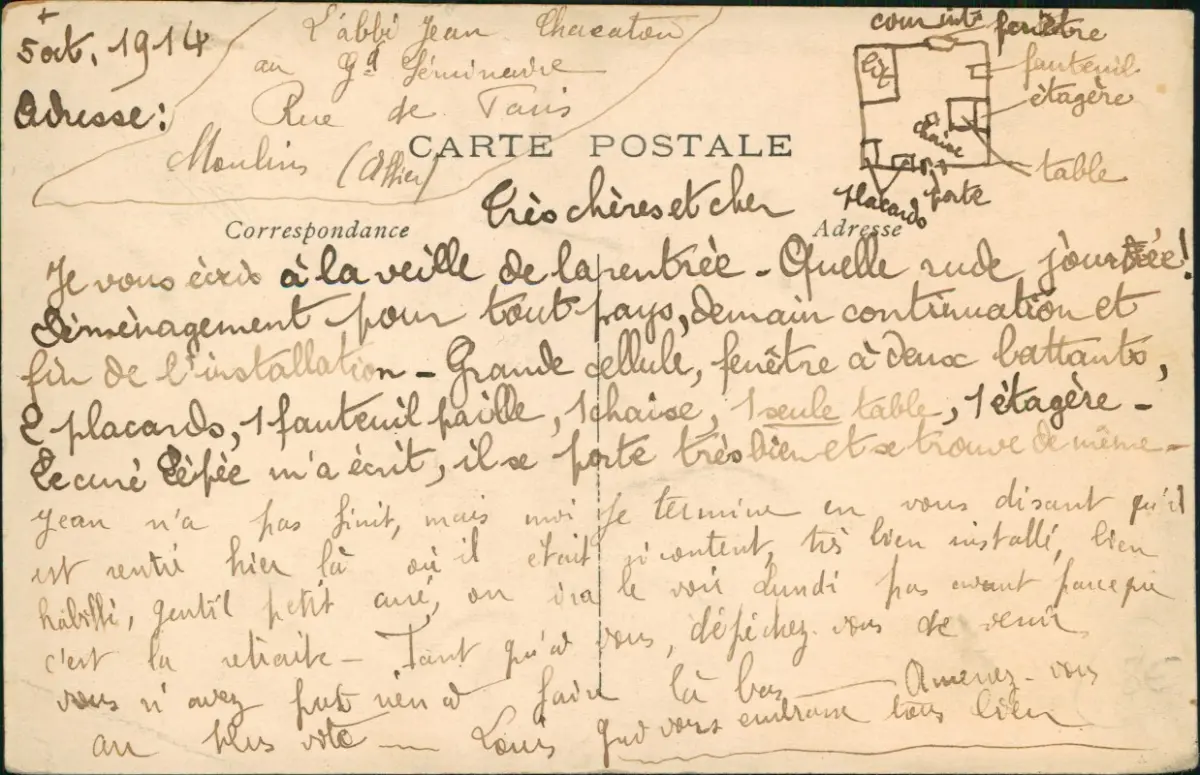 +
5 oct. 1914
Adresse:
L'abbé Jean Chacaton
au Gd Séminaire
Rue de Paris
Moulins (Allier)
cour int fenêtre
lit
fauteuil
étagère
chaise
table
placards
porte
CARTE POSTALE
Correspondance
Adresse
Très chères et cher
Je vous écris à la veille de la rentrée - Quelle rude journée!
Déménagement pour tout pays, demain continuation et
fin de l'installation - Grande cellule, fenêtre à deux battants,
2 placards, 1 fauteuil paille, 1 chaise, 1 seule table, 1 étagère -
Le curé m'a écrit, il se porte très bien et se trouve de même -
Jean n'a pas finit, mais moi je termine en vous disant qu'il
est rentré hier là où il était si content, très bien installé, bien
habillé, gentil petit curé, on ira le voir Lundi pas avant parceque
c'est la retraite - Tant qu'à vous, dépéchez-vous de venir
vous n'avez put rien à faire là bas — Amenez-vous
au plus vite — Louis qui vous embrasse tous bien